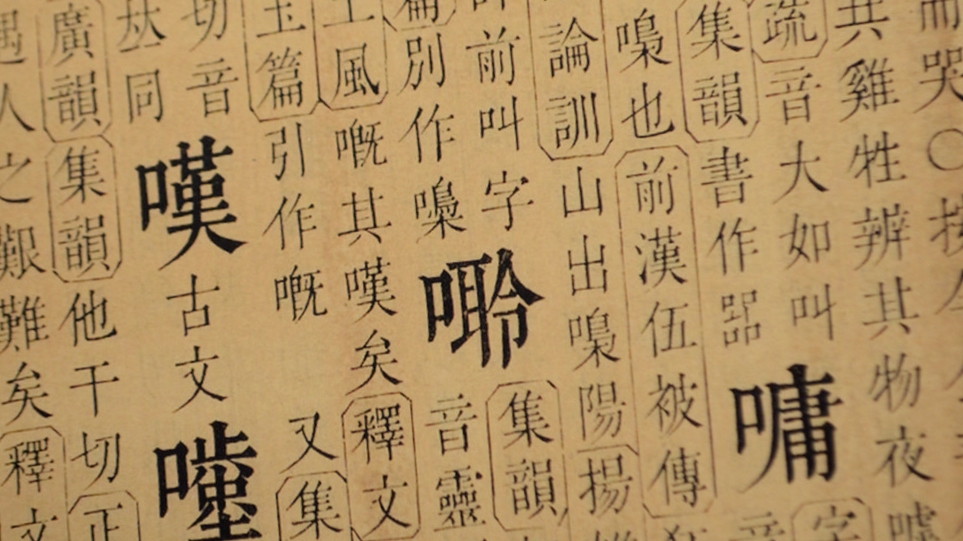 而哭○按
共雞牲辨其物夜嘑
疏音大如叫
嘃
集韻書作
嘄也前漢伍被傳
論訓山出嘄陽揚
前叫字
別作
集韻
音靈
風嘅其嘆矣釋文
玉篇引作嘅又集
切音
同
嘆古文
廣韻集韻他干切正
遇人之艱難矣釋文